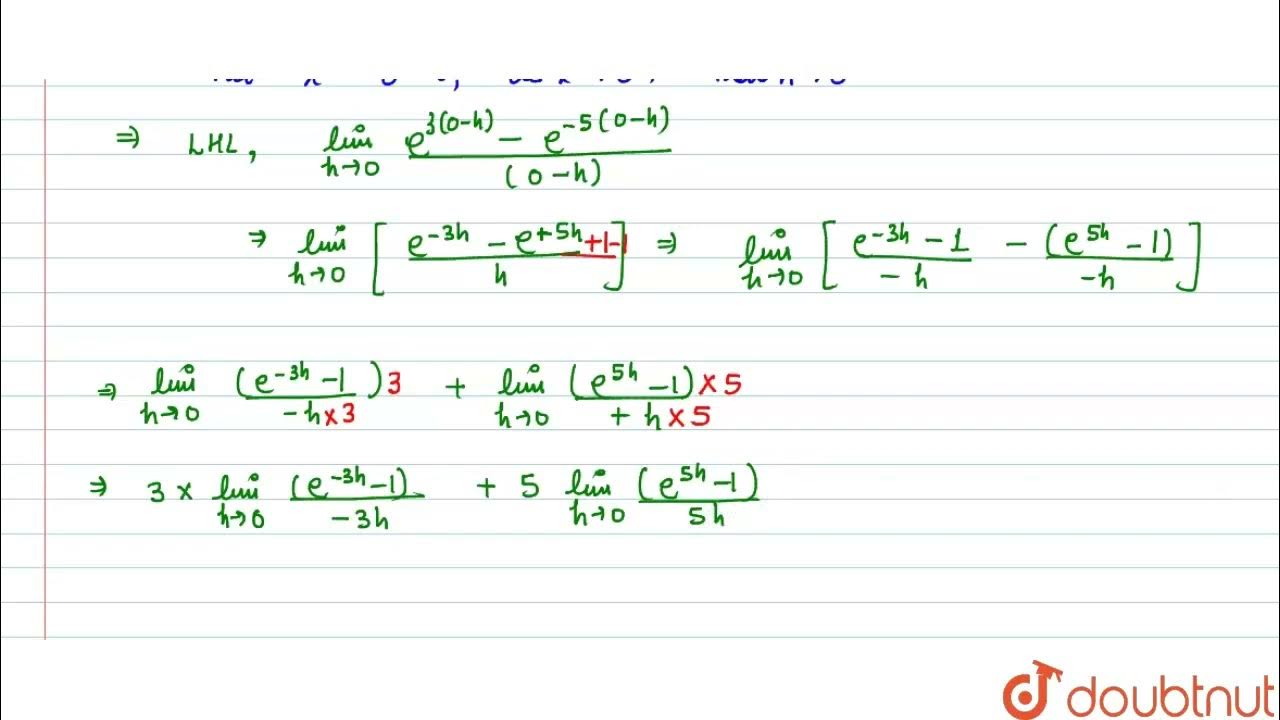 ⇒ LHL, lim h→0 e^{3(0-h)} - e^{-5(0-h)} / (0-h)
⇒ lim h→0 [ e^{-3h} - e^{+5h} +1-1 / h ] ⇒ lim h→0 [ e^{-3h} - 1 / -h - (e^{5h} - 1) / -h ]
⇒ lim h→0 (e^{-3h} - 1) 3 / -h×3 + lim h→0 (e^{5h} - 1) × 5 / + h × 5
⇒ 3 × lim h→0 (e^{-3h} - 1) / -3h + 5 lim h→0 (e^{5h} - 1) / 5h
doubtnut